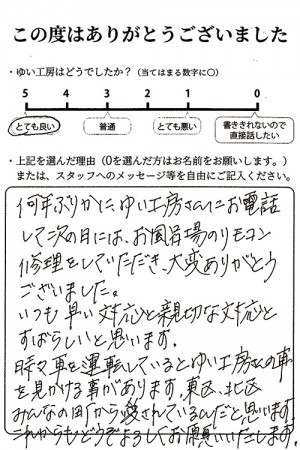 この度はありがとうございました
・ゆい工房はどうでしたか？（当てはまる数字に○）
5 4 3 2 1 0
とても良い 普通 とても悪い 書ききれないので直接話したい
・上記を選んだ理由（0を選んだ方はお名前をお願いします。）
または、スタッフへのメッセージ等を自由にご記入ください。
何年ぶりかに、ゆい工房さんにお電話
して次の日には、お風呂場のリモコン
修理をしていただき、大変ありがとう
ございました。
いつも早い対応と親切な対応と
すばらしいと思います。
時々車を運転しているとゆい工房さんの車
を見かける事があります。東区、北区
みんなの町から愛されているんだと思います。
これからもどうぞよろしくお願いいたします。